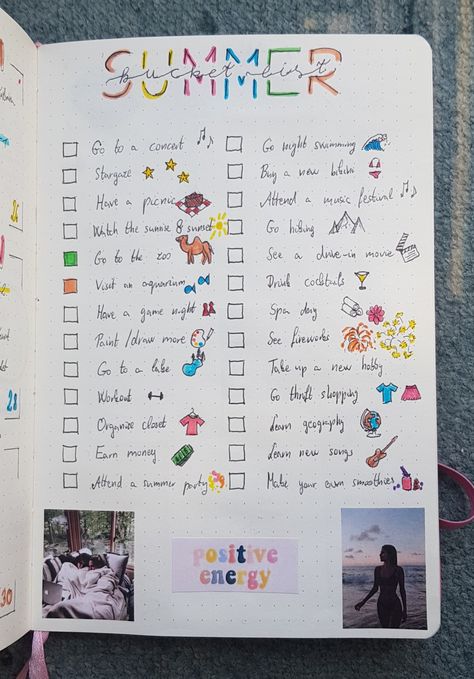 SUMMER
bucket list
Go to a concert
Stargaze
Have a picnic
Watch the sunrise & sunset
Go to the zoo
Visit an aquarium
Have a game night
Paint/draw more
Go to a lake
Workout
Organize closet
Earn money
Attend a summer party
Go night swimming
Buy a new bikini
Attend a music festival
Go hiking
See a drive-in movie
Drink cocktails
Spa day
See fireworks
Take up a new hobby
Go thrift shopping
Learn geography
Learn new songs
Make your own smoothies
positive
energy
28
30